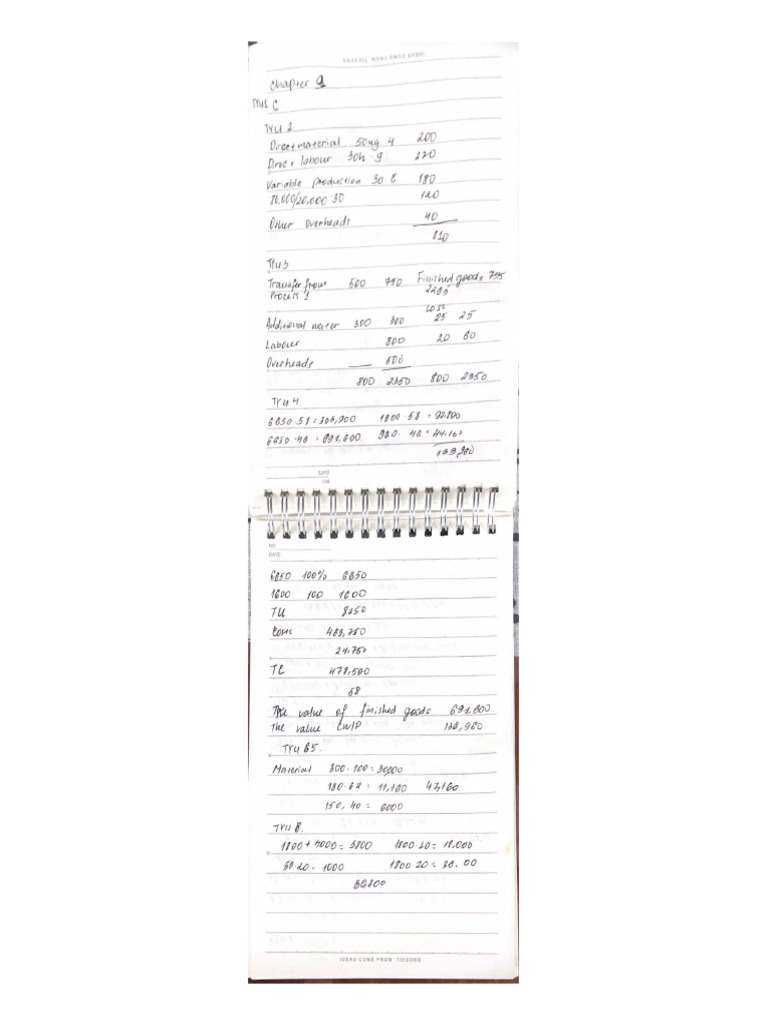 IDEAS COME FROM TIESONG
Chapter 9
TYU1 C
TYU 2
Direct material 50kg 4 200
Direct labour 30h 9 270
Variable production 30 6 180
120
Other overheads 40
810
TYU3
Transfer from 500 750 Finished goods 755
Process 1 2265
Loss
Additional mater 300 300 25 25
Labour 800 20 60
Overheads 500
800 2350 800 2350
TYU 4.
1600 58 = 92.800
6650 46 = 
DATE
CN
NO
DATE:
6650 100% 6650
1600 100 1600
TU 8250
Costs 453,750
24.750
TC 478,500
58
The value of finished goods 691,600
The value CWIP 136,960
TYU 5.
Material 300 · 100 = 30,000
180 · 62 = 11,160 47,160
150, 40 = 6000
TYU 6.
1800 + 4000 = 5800 1800 · 10 = 18,000
50 · 20 = 1000 1800 20 = 36.00
IDEAS COME FROM TIESONG